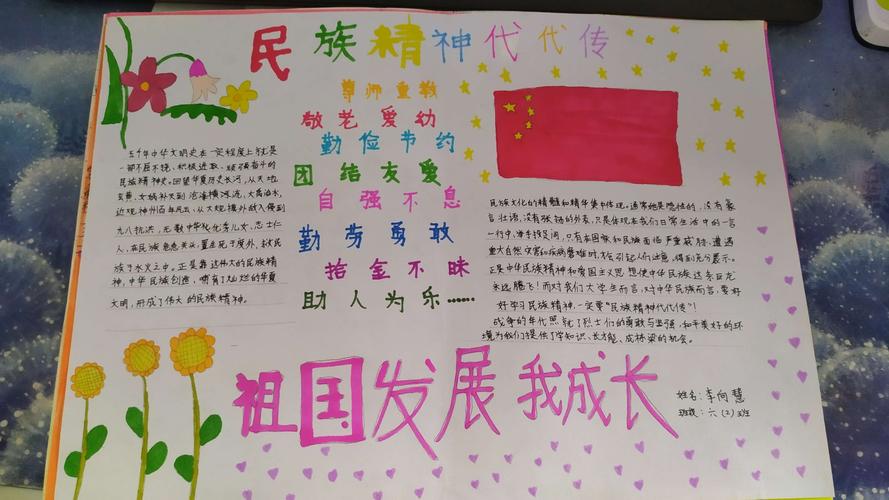 民族精神代代传
尊师重教
敬老爱幼
勤俭节约
团结友爱
自强不息
勤劳勇敢
拾金不昧
助人为乐……
五千年中华文明史在一定程度上就是
一部不屈不挠、积极进取、顽强奋斗的
民族精神史。回望华夏历史长河,从大地
玄黄、女娲补天到沧海横流,大禹治水,
近观神州百年风云,从大规模外敌入侵到
九八抗洪,无数中华优秀儿女、志士仁
人,在民族危急关头,置生死于度外,救民
族于水火之中。正是靠这伟大的民族精
神,中华民族创造,拥有了灿烂的华夏
文明,形成了伟大的民族精神。
民族文化的精髓和精华集中体现。通常她是隐性的,没有豪
言壮语,没有张扬的外表,只是体现在我们日常生活中的一言
一行中,举手投足间,只有在国家和民族面临严重威胁、遭遇
重大自然灾害和疾病磨难时,才会引起人们注意,得到充分展示。
正是中华民族精神和爱国主义思想使中华民族这条巨龙
永远腾飞!而对我们大学生而言,对中华民族而言,要好
好学习民族精神,一定要“民族精神代代传”!
战争的年代照亮了烈士们的勇敢与坚强,和平美好的环
境为我们提供了学知识、长才能、成栋梁的机会。
祖国发展我成长
姓名:李向慧
班级:六(2)班